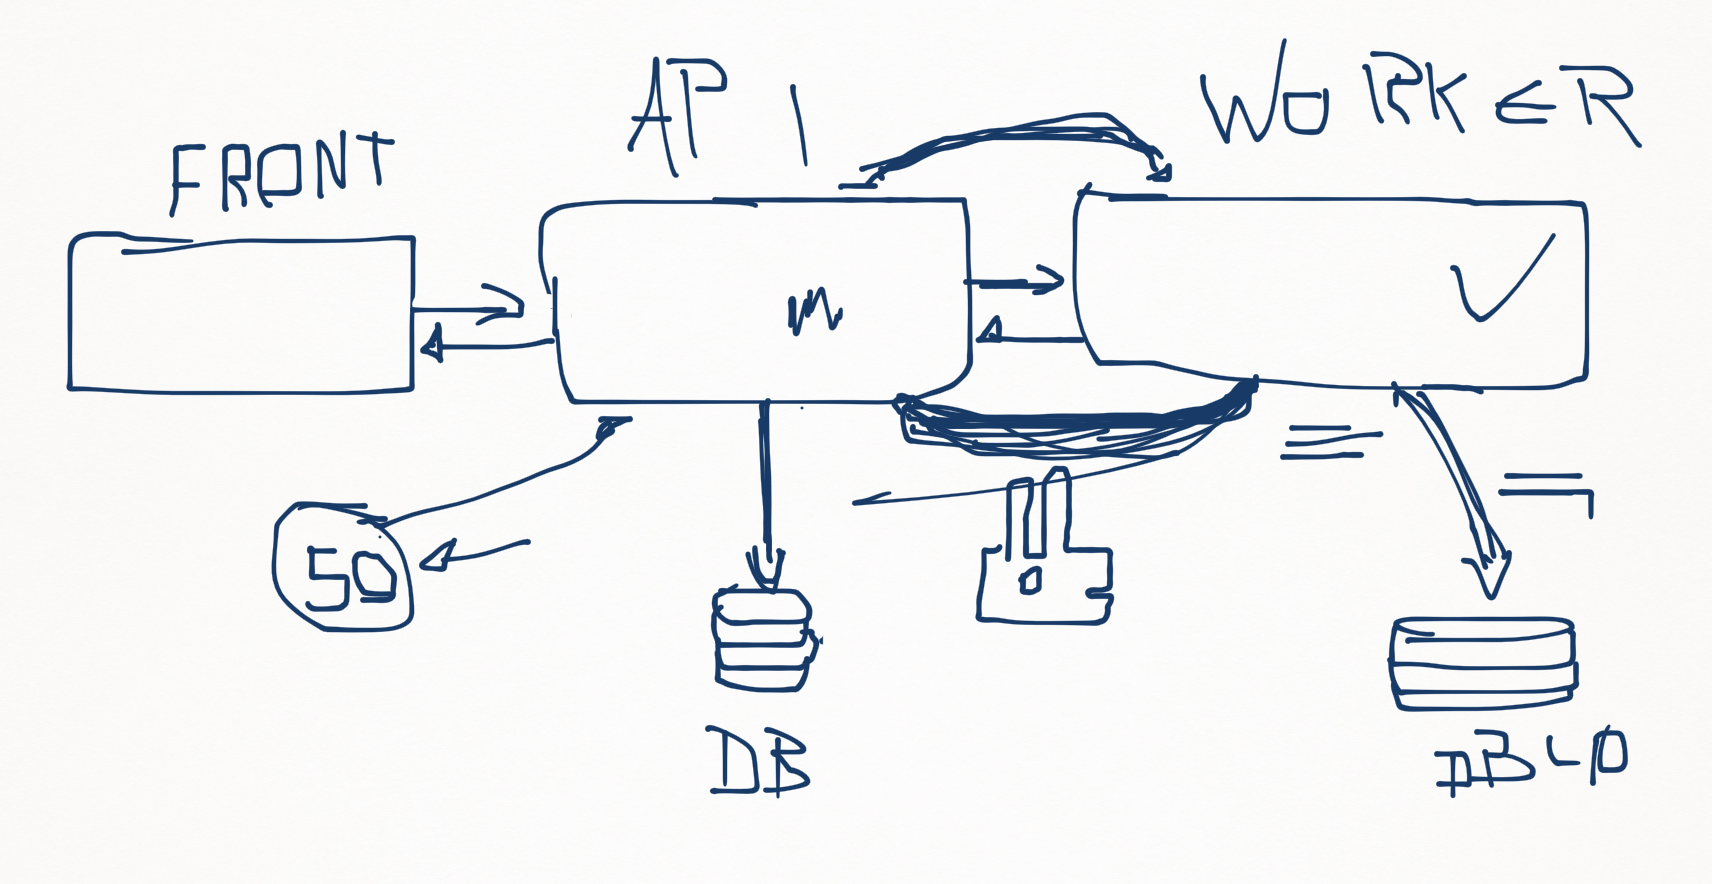 FRONT
API
WORKER
50
DB